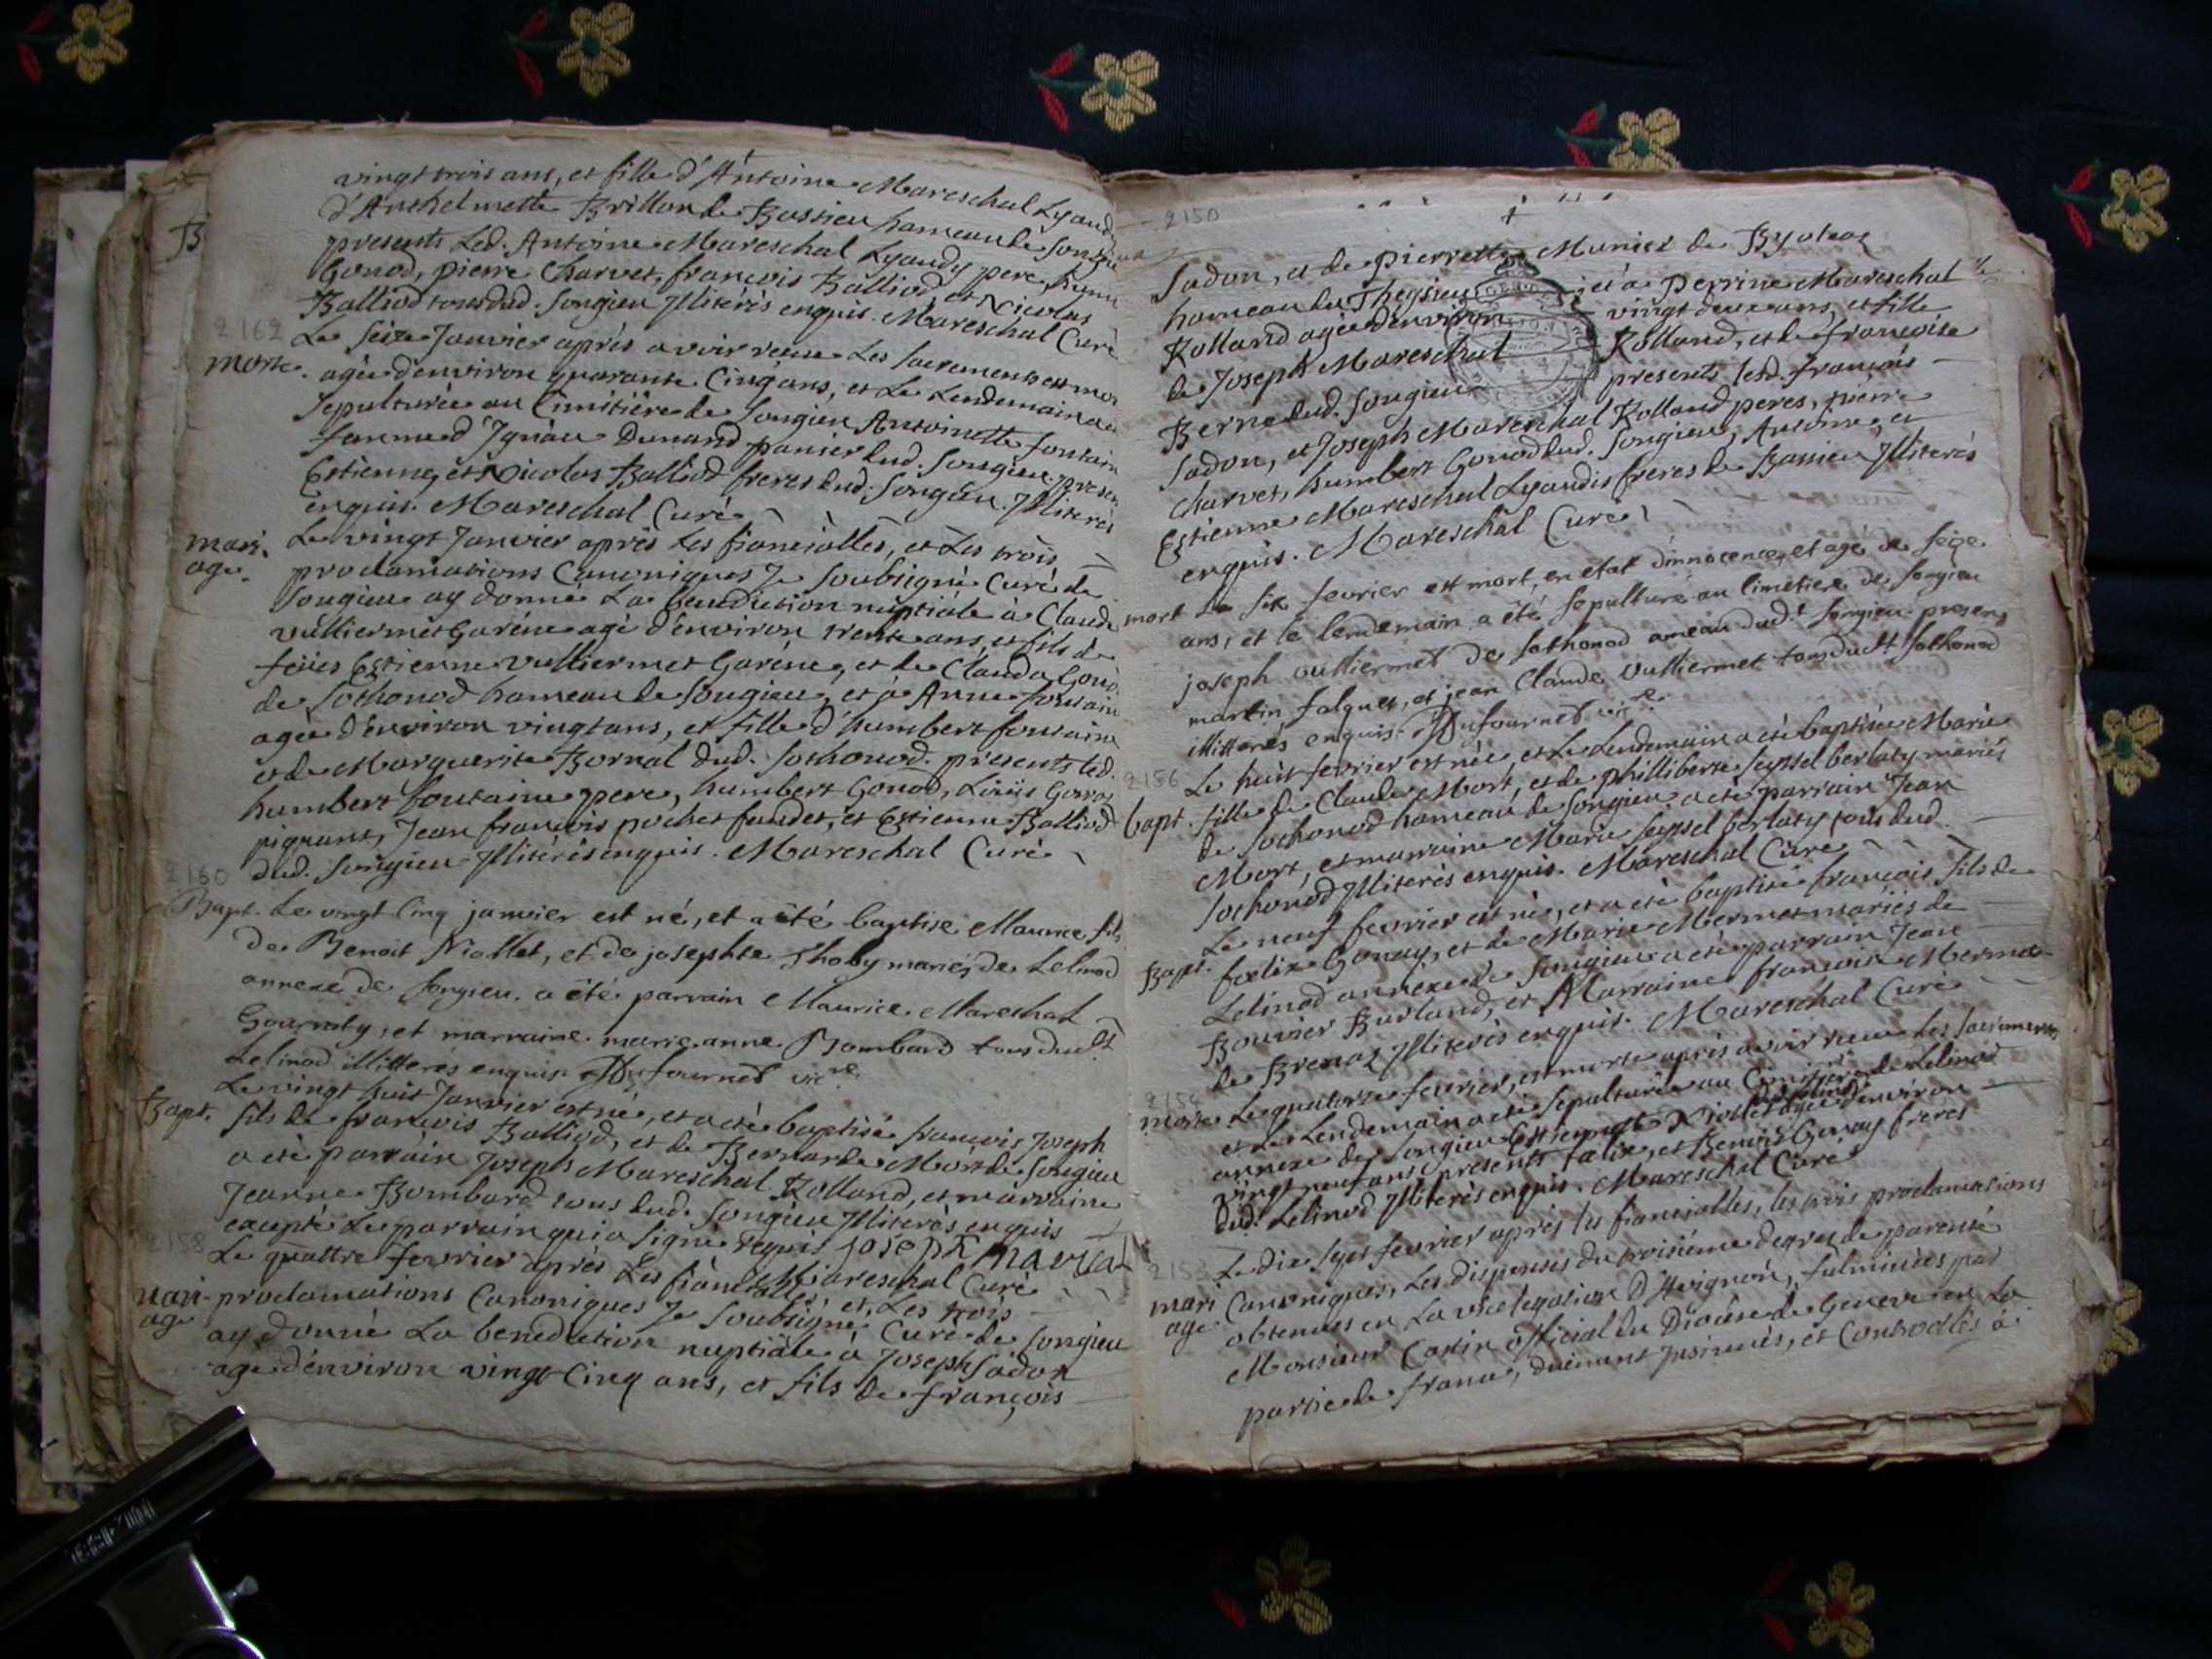 vingt trois ans, et fille d'Antoine Mareschal Lyaud
d'Anthelmette Brillon de Bassieu hameau de Songieu
presents Led. Antoine Mareschal Lyaudy pere, hum
Gonod, pierre Charvet, francois Balliod, et Nicolas
Balliod tous dud. Songieu Illiterés enquis. Mareschal Curé
2162
morte. Le seize Janvier aprés avoir receu Les sacrements est mor
agée d'environ quarante Cinq ans, et Le Lendemain a
sepulturée au Cimitiére de Songieu Antoinette fontain
femme d'Ignace Dunand panier dud. Songieu. presen
Estienne, et Nicolas Balliod freres dud. Songieu. Illiteres
enquis. Mareschal Curé
mari
age. Le vingt Janvier aprés Les fiancialles, et Les trois
proclamations Canoniques Je soubsigné Curé de
Songieu ay donné La benediction nuptiale à Claude
Vulliermet Garéne agé d'environ trente ans, et fils de
feües Estienne Vulliermet Garéne, et de Clauda Gono
de Sothonod hameau de Songieu, et à Anne fontain
agée d'environ vingt ans, et fille d'humbert fontaine
et de Marguerite Bornal dud. Sothonod. presents led.
humbert fontaine pere, humbert Gonod, Loüis Gono
pignant, Jean francois pochet faudet, et Estienne Balliod
dud. Songieu Illiterés enquis. Mareschal Curé
2160
Bapt. Le vingt Cinq janvier est né, et a été baptise Maurice fils
de Benoit Niollet, et de josephte Thoby mariés de Lelinod
annexe de Songieu. a été parrain Maurice Mareschal
Gournaty, et marraine marie anne Bombard tous dudt
Lelinod illitterés enquis Dufournet vicre
Bapt. Le vingt huit Janvier est né, et a été baptisé francois Joseph
fils de francois Balliod, et de Bernarde Mort de Songieu
a été parrain Joseph Mareschal Rolland, et marraine
Jeanne Bombard tous dud. Songieu Illiterés enquis
excepté Le parrain qui a signé requis joseph
2158
Mareschal Curé
mari-
age Le quattre fevrier aprés Les fiancialles, et Les trois
proclamations Canoniques Je soubsigné Curé de Songieu
ay donné La benediction nuptiale à Joseph Sadon
agé d'environ vingt Cinq ans, et fils de francois
2150
Sadon, et de pierrette Muniet de Byoleaz
hameau de ; et à Perrine Mareschal
Rolland agée d'environ vingt deux ans, et fille
de Joseph Mareschal Rolland, et de francoise
Berne dud. Songieu presents led. francois
Sadon, et Joseph Mareschal Rolland peres, pierre
Charvet, humbert Gonod dud. Songieu, Antoine, et
Estienne Mareschal Lyaudis freres de Bassieu Illiterés
enquis. Mareschal Curé
mort Le six fevrier est mort, en etat d'innocence, et agé de sege
ans, et le lendemain a été sepulturé au cimetiere de Songieu
joseph vulliermet de Sothonod ameau dudt Songieu presens
martin falquet, et jean Claude Vulliermet tous dudt Sothonod
illitterés enquis Dufournet vicre
2156
bapt. Le huit fevrier est née, et Le Lendemain a été baptisée Marie
fille de Claude Mort, et de philliberte Seyssel berlaty mariés
de Sothonod hameau de Songieu. a été parrain Jean
Mort, et marraine Marie Seyssel berlaty tous dud.
Sothonod Illiterés enquis. Mareschal Curé
Bapt. Le neuf fevrier est né, et a été baptisé francois fils de
foelix Gonay, et de Marie Mermet mariés de
Lelinod annexe de Songieu a été parrain Jean
Bouvier Burland, et Marraine francoise Mermet
de Brenaz Illiterés enquis. Mareschal Curé
2154
morte Le quatorze fevrier, est morte aprés avoir receu Les sacrements
et Le Lendemain a été sepulturée au Cimitiere de Lelinod
annexe de Songieu Estiennette Niollet agée d'environ
vingt neuf ans presents foelix, et Benoit Gonay freres
dud. Lelinod Illiterés enquis. Mareschal Curé
2153
mari
age Le dix sept fevrier aprés les fiancialles, les trois proclamations
Canoniques, Les dispenses du troisiéme degrez de parenté
obtenues en La vice legation D'Avignon, fulminées par
Monsieur Castin official du Diocése de Geneve en La
partie de france, duëment Insinuës, et Controollés à